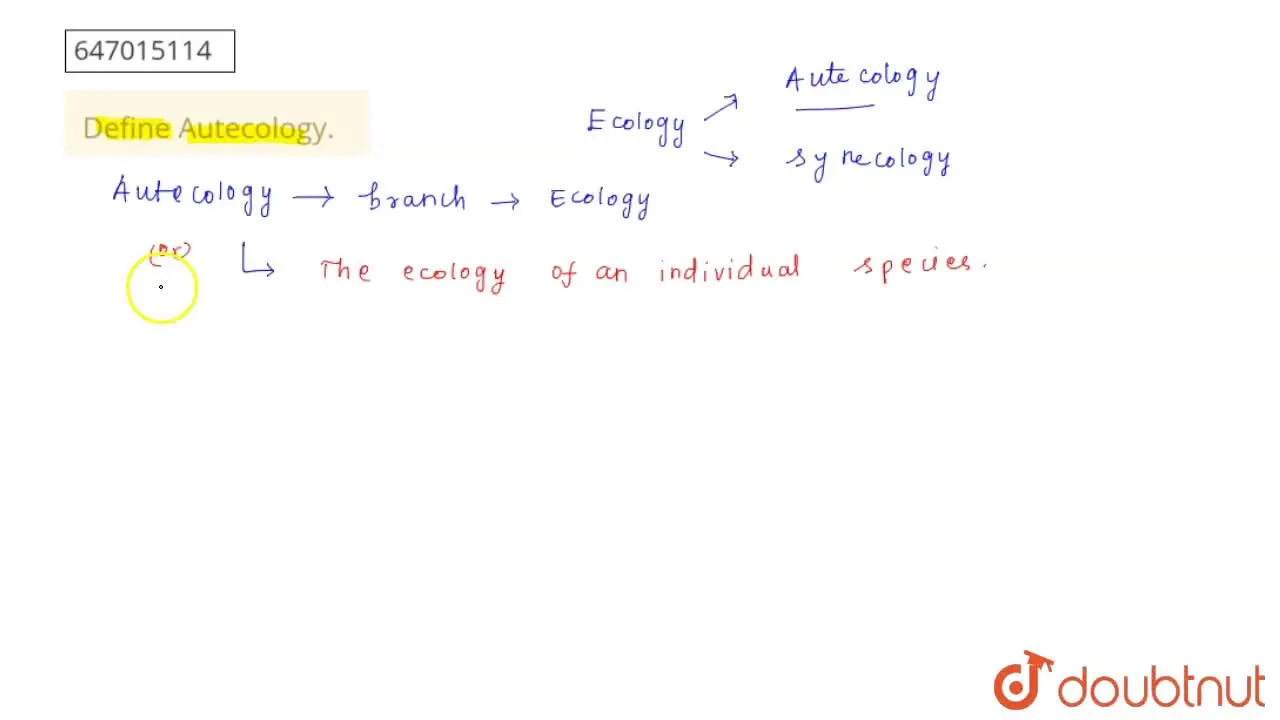 647015114
Define Autecology.
Autecology
Ecology
synecology
Autecology → branch → Ecology
(or)
The ecology of an individual species.
doubtnut